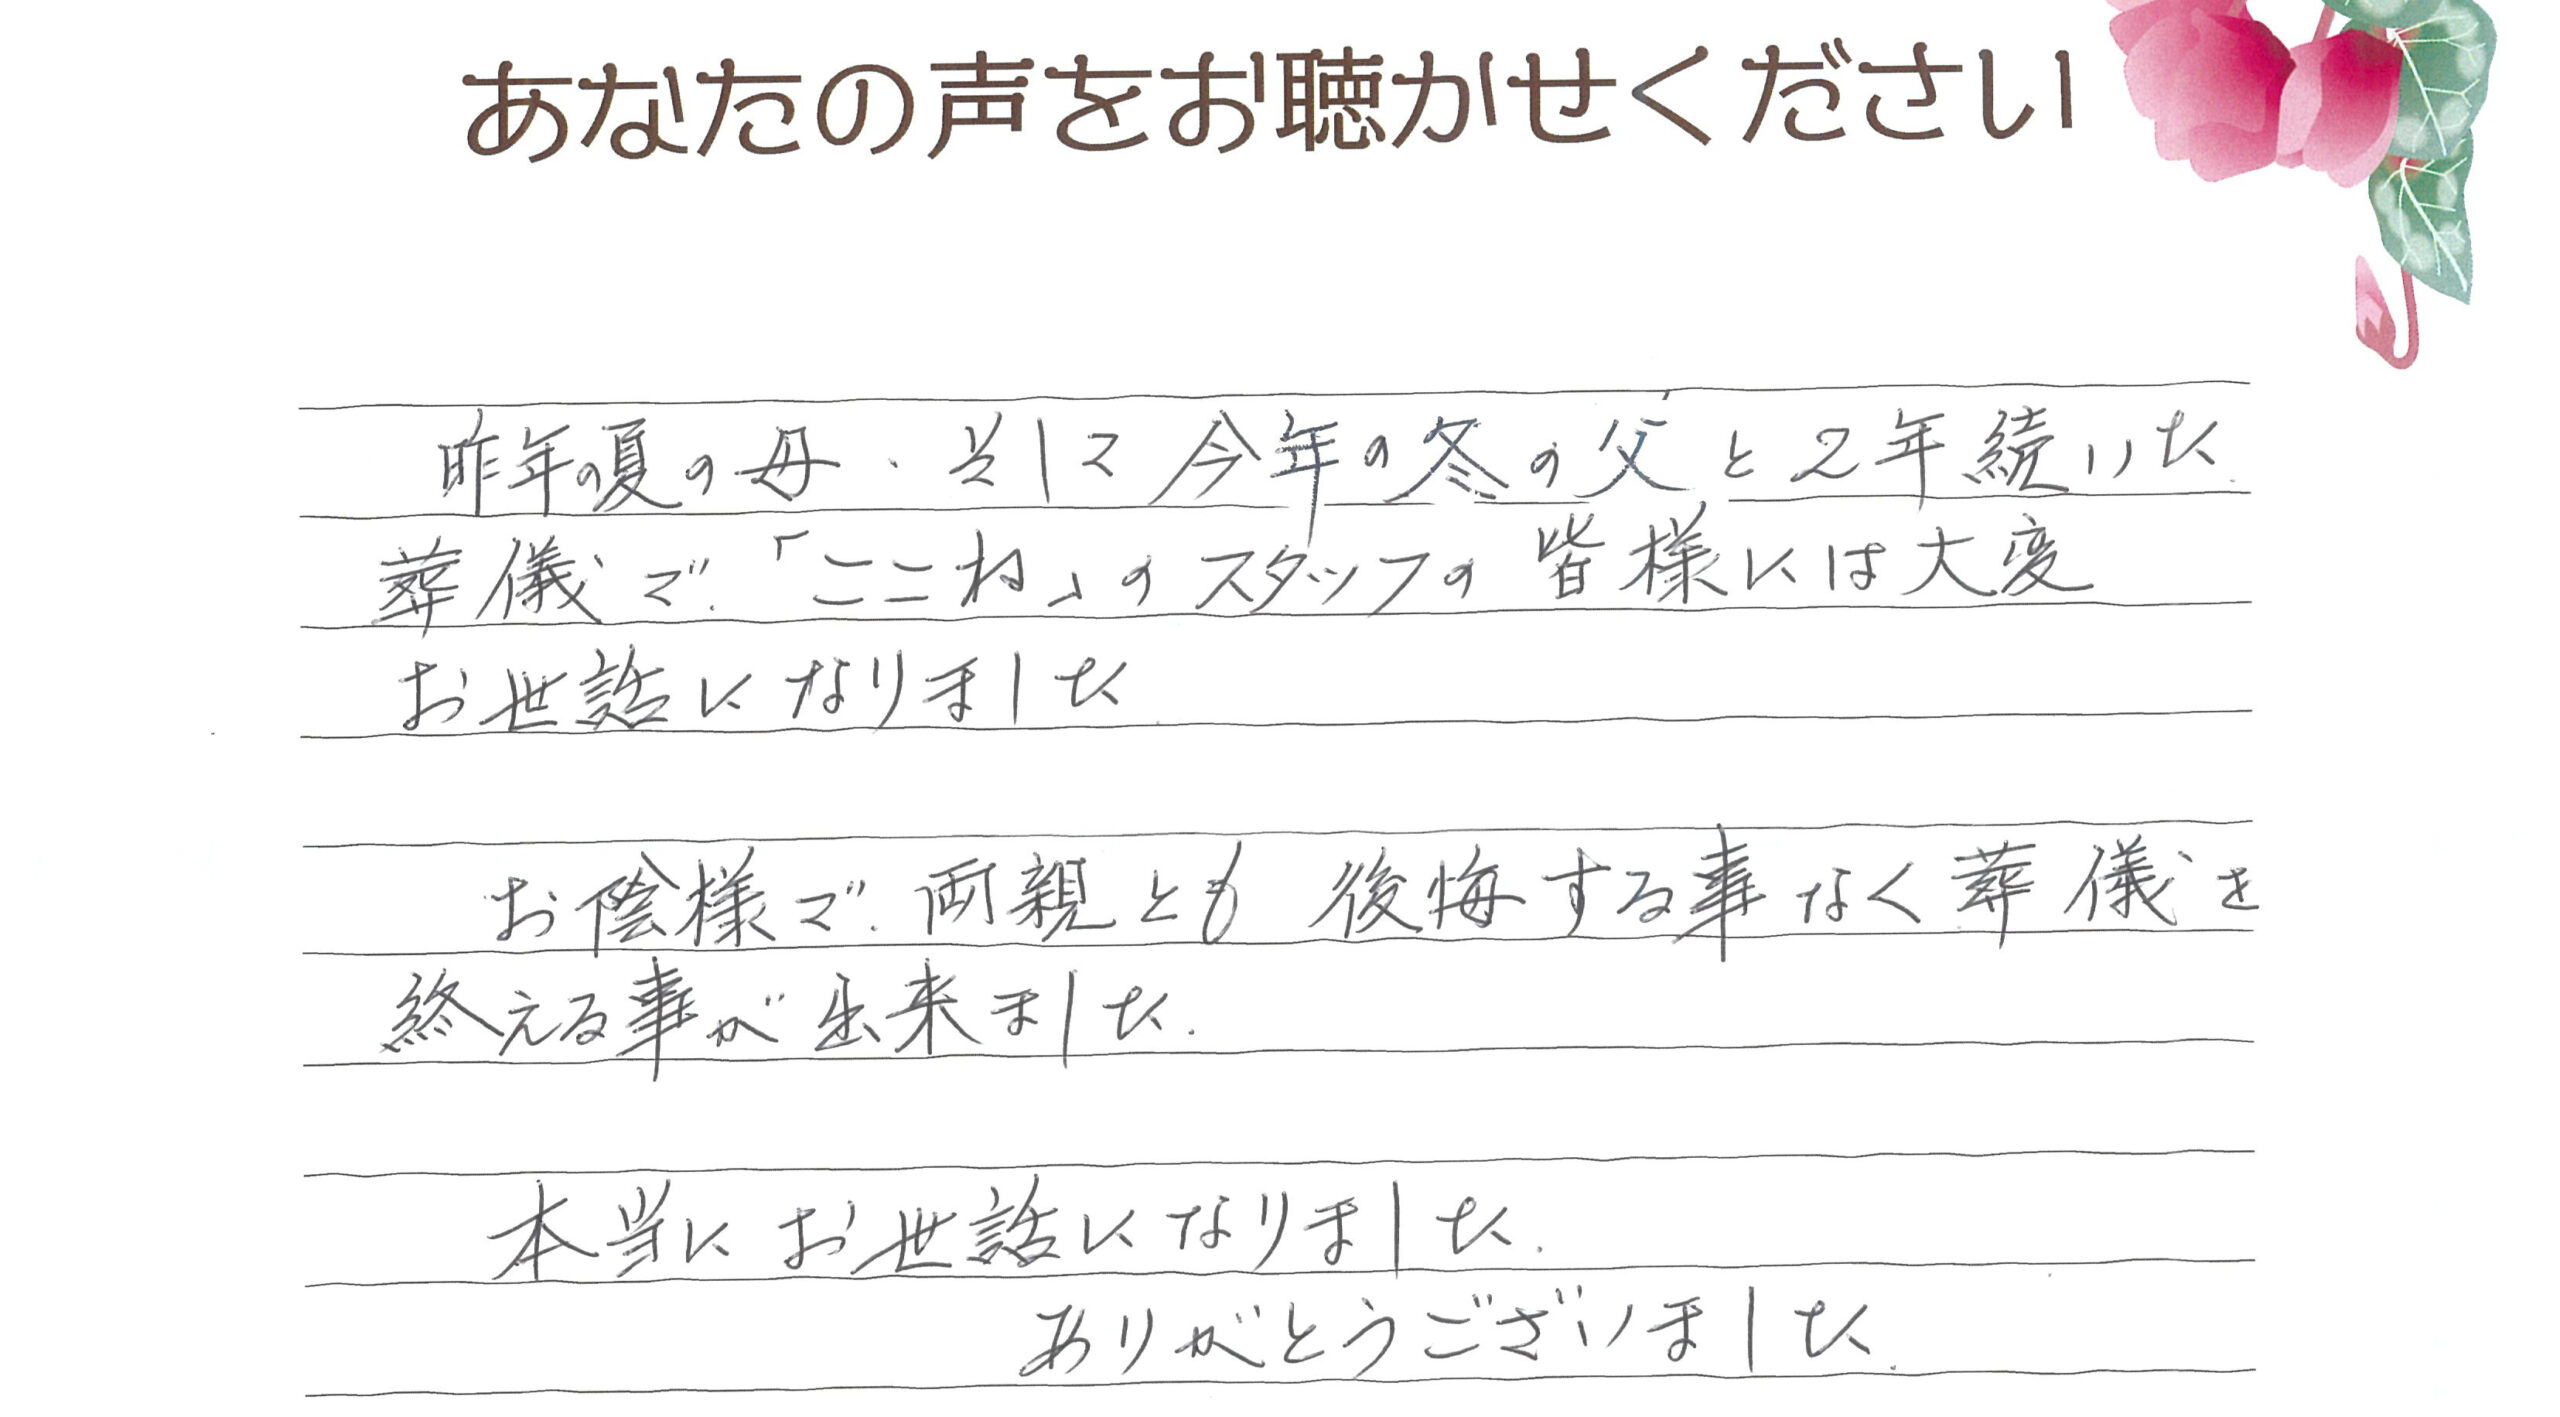 あなたの声をお聴かせください
昨年の夏の母、そして今年の冬の父と2年続いた
葬儀で、「ここね」のスタッフの皆様には大変
お世話になりました
お陰様で、両親とも後悔する事なく葬儀を
終える事が出来ました。
本当にお世話になりました。
ありがとうございました。